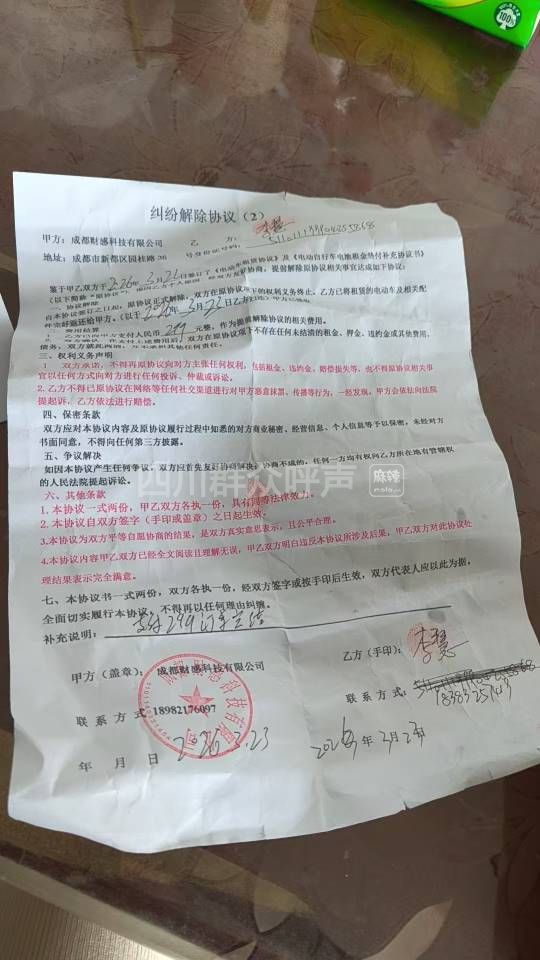 100%
纠纷解除协议（2）
甲方：成都财感科技有限公司 乙 方：李慧
地址：成都市新都区园桂路36 号身份证号码：
鉴于甲乙双方于2026年3月21日签订了《电动车租赁协议》及《电动自行车电池租金垫付补充协议书》
（以下简称"原协议"）
一、协议解除
自本协议签订之日起，原协议正式解除，双方在原协议项下的权利义务终止。乙方已将租赁的电动车及相关配
件完好返还给甲方。（以于2026年3月23日
二、费用结算
299 元整，作为提前解除协议的相关费用。
双方在原协议项下不存在任何未结清的租金、押金、违约金或其他费用、
三、权利义务声明
1 双方承诺，不得再原协议向对方主张任何权利，包括租金、违约金、赔偿损失等，也不得原协议相关事
宜以任何方式向对方进行任何投诉、仲裁或诉讼。
2.乙方不得已原协议在网络等任何社交渠道进行对甲方恶意抹黑、传播等行为，一经发现，甲方会依法向法院
提起诉，乙方依法进行赔偿。
四、保密条款
双方应对本协议内容及原协议履行过程中知悉的对方商业秘密、经营信息、个人信息等予以保密，未经对方
书面同意，不得向任何第三方披露。
五、争议解决
如因本协议产生任何争议，双方应首先友好协商解决；协商不成的，任何一方均有权向乙方所在地有管辖权
的人民法院提起诉讼。
四川群众呼声 麻辣 mala.cn
六、其他条款
1.本协议一式两份，甲乙双方各执一份，具有同等法律效力。
2.本协议自双方签字（手印或盖章）之日起生效。
3.本协议为双方平等自愿协商的结果，是双方真实意思表示，且公平合理。
4.本协议内容甲乙双方已经全文阅读且理解无误，甲乙双方明白违反本协议所涉及后果，甲乙双方对此协议处
理结果表示完全满意。
七、本协议书一式两份，双方各执一份，经双方签字或按手印后生效，双方代表人应以此为据，
全面切实履行本协议，不得再以任何理由纠缠。
补充说明：支付299订单完结
甲方（盖章）： 成都财感科技有限公司 乙方（手印）：李慧
联 系 方 式 18982176097 联 系 方 式：
18383725143
年 月 日 2026.3.23 2026年3月23